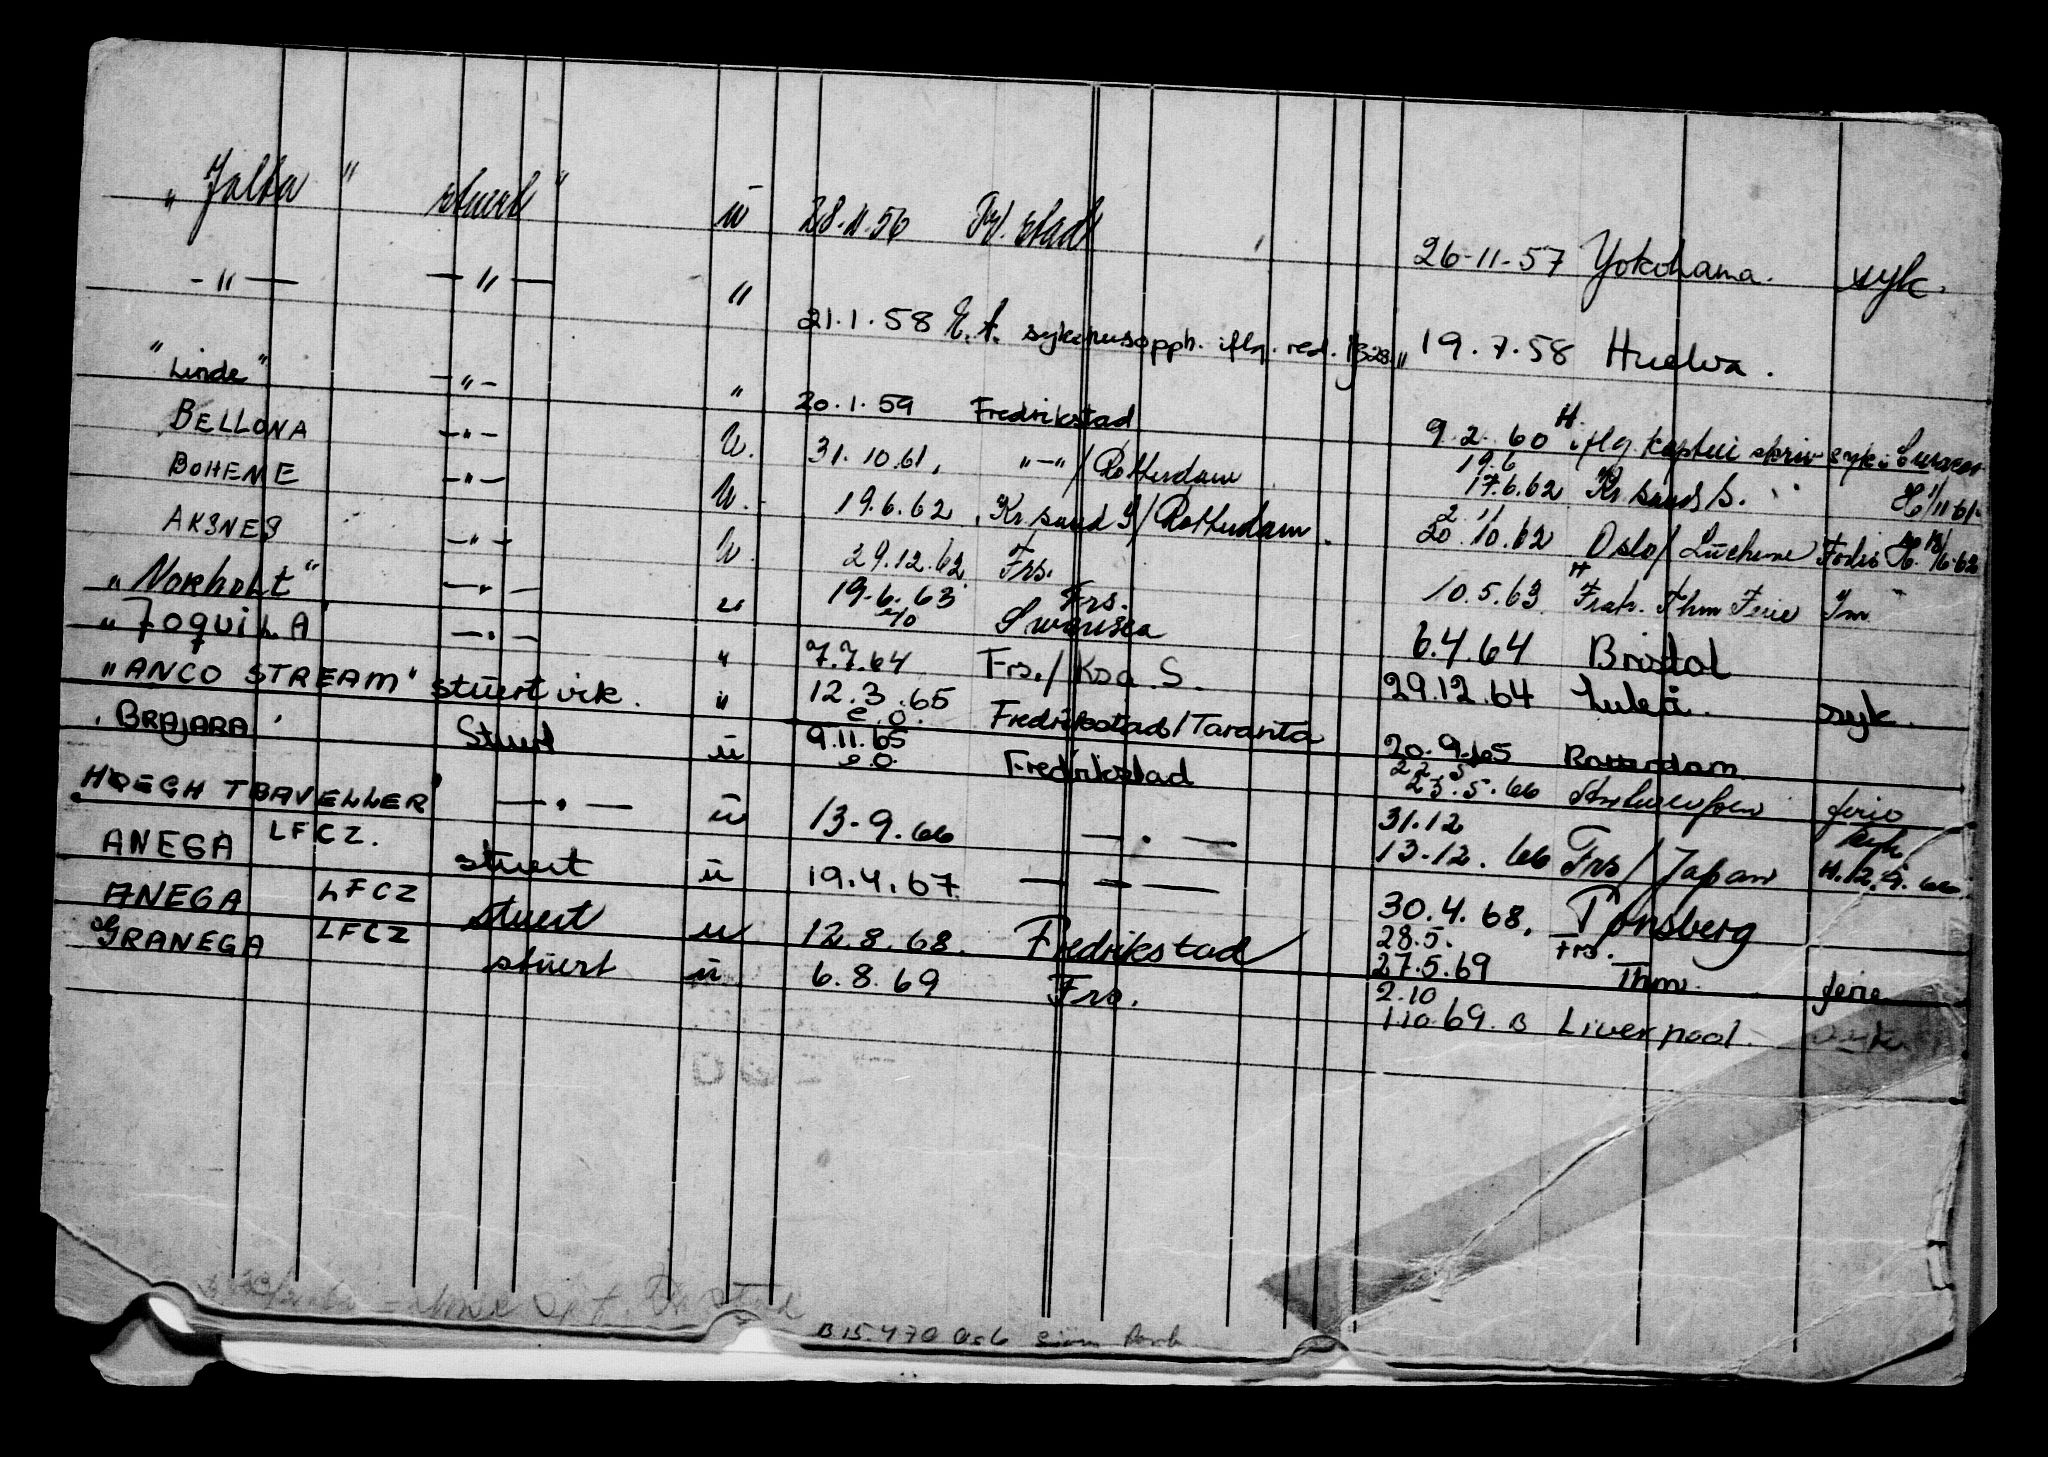 "Jalta" stuert" ū 28.11.56 Fr. stad 26-11-57 Yokohama. syk.
-"- -"- " 21.1.58 E.A. sykehusopph. iflg. red. 19.7.58 Huelva.
"Linde" -"- " 20.1.59 Fredrikstad 9.2.60 iflg. kaptui skriv syk i Curacao
BELLONA -"- ū. 31.10.61, "-"/Rotterdam 19.6 17.6.62 Kr. sand S. H 1/11 61
BOHEME -"- ū. 19.6.62 Kr. sand S/Rotterdam. 2.11 20.10.62 Oslo/ Forlis
AKSNES -"- ū. 29.12.62 Frs. 10.5.63 Thm Ferie
"Norholt" -"- " 19.6.63 Frs. Swansea 6.4.64 Bristol
"JOQUILA -"- " 7.7.64 Frs./Ksa.S. 29.12.64 Luleå. syk.
"ANCO STREAM" stuert vik. " 12.3.65 e.o. Fredrikstad/Taranta 20.9.65 Rotterdam
"BRAJARA" Stuert ū 9.11.65 e.o. Fredrikstad 22.5 23.5.66 ferie
HØEGH TRAVELLER -"- ū 13.9.66 -"- 31.12 13.12.66 Frs/Japan syk
ANEGA LFCZ. stuert ū 19.4.67 -"- 30.4.68, Tønsberg
ANEGA LFCZ stuert ū 12.8.68. Fredrikstad 28.5. 27.5.69 Frs. Thm. ferie
GRANEGA LFCZ stuert ū 6.8.69 Frs. 2.10 1.10.69. B Liverpool. syk
B 15.470 Os6